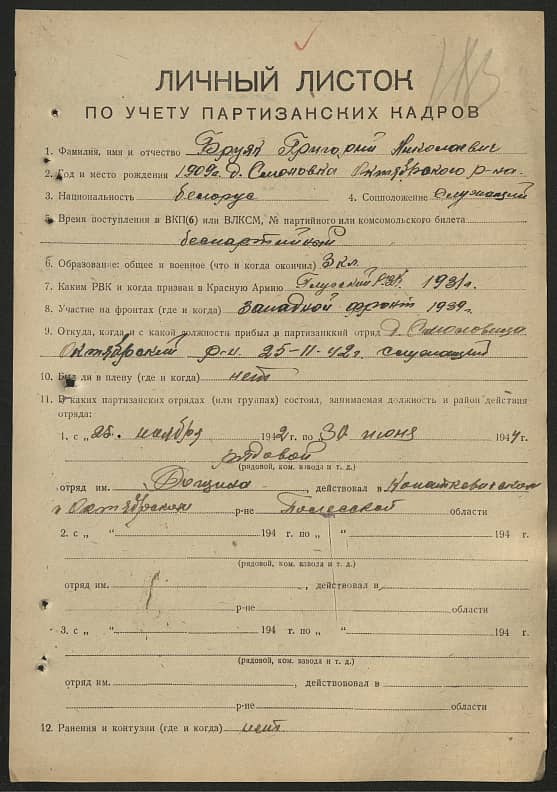 ЛИЧНЫЙ ЛИСТОК
ПО УЧЕТУ ПАРТИЗАНСКИХ КАДРОВ
1. Фамилия, имя и отчество Григорий Николаевич
2. Год и место рождения 1909г. д. Смоловка Октябрского р-на.
3. Национальность белорус 4. Соцположение Служащий
5. Время поступления в ВКП(б) или ВЛКСМ, № партийного или комсомольского билета
беспартийный
6. Образование: общее и военное (что и когда окончил) 3 кл.
7. Каким РВК и когда призван в Красную Армию Глусский РВК 1931г.
8. Участие на фронтах (где и когда) Западной фронт 1939г.
9. Откуда, когда и с какой должность прибыл в партизанкий отряд д.
Октябрский р-н. 25-11-42г. служащий
10. Был ли в плену (где и когда) нет
11. В каких партизанских отрядах (или группах) состоял, занимаемая должность и район действия
отряда:
1. с „25. ноября 1942 г. по 30 июня 1944 г.
рядовой
(рядовой, ком. взвода и т. д.)
отряд им. , действовал в Копаткевичском
и Октябрском р-не Полесской области
2. с „ “ 194 г. по „ “ 194 г.
(рядовой, ком. взвода и т. д.)
отряд им. , действовал в
р-не области
3. с „ “ 194 г. по „ “ 194 г.
(рядовой, ком. взвода и т. д.)
отряд им. , действововал в
р-не области
12. Ранения и контузии (где и когда) нет.